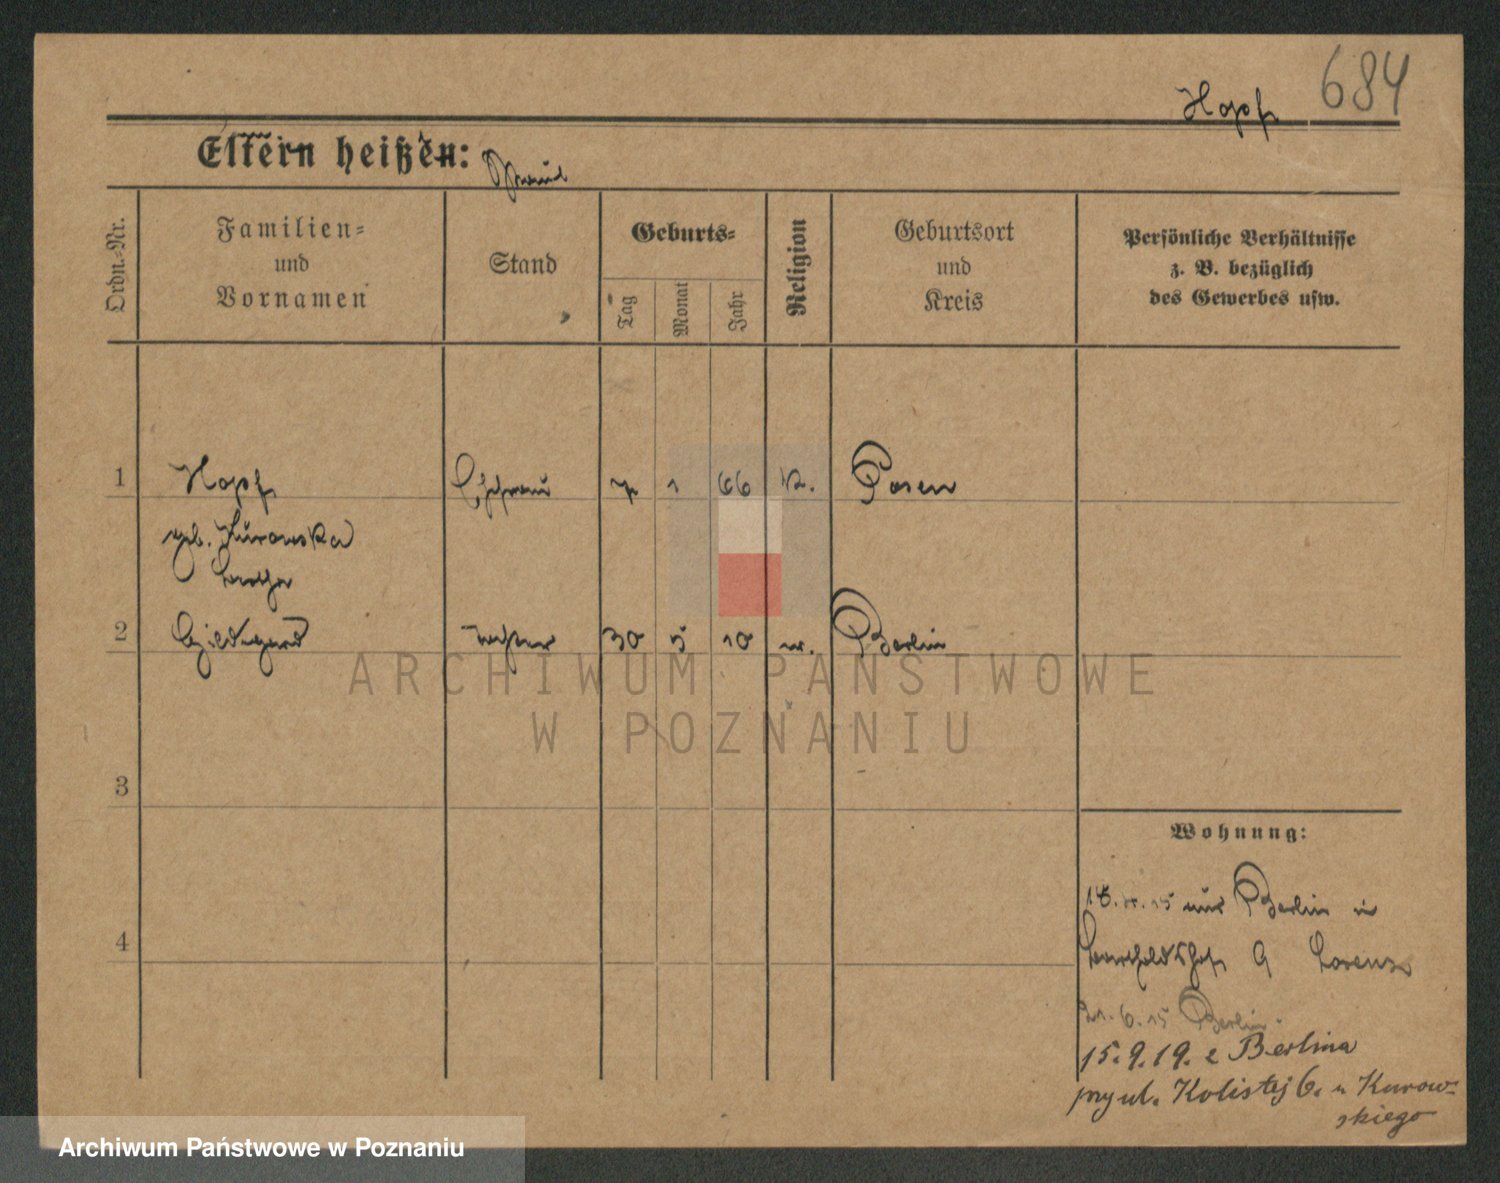 684
Hopf
Eltern heißen:
Ordn.-Nr.
Familien-
und
Vornamen
Stand
Geburts-
Tag
Monat
Jahr
Religion
Geburtsort
und
Kreis
Persönliche Verhältnisse
z. B. bezüglich
des Gewerbes usw.
1 Hopf Ehefrau 7 1 66 K. Posen
geb. Kurowska
2 Hildegard Tochter 30 5 10 Berlin
3
4
Wohnung:
18. 15 aus Berlin in
9 Lorenz
21. 6. 15 Berlin.
15. 9. 19. z Berlina
przy ul. Kolistej 6. u Kurow-
skiego
ARCHIWUM PAŃSTWOWE
W POZNANIU
Archiwum Państwowe w Poznaniu